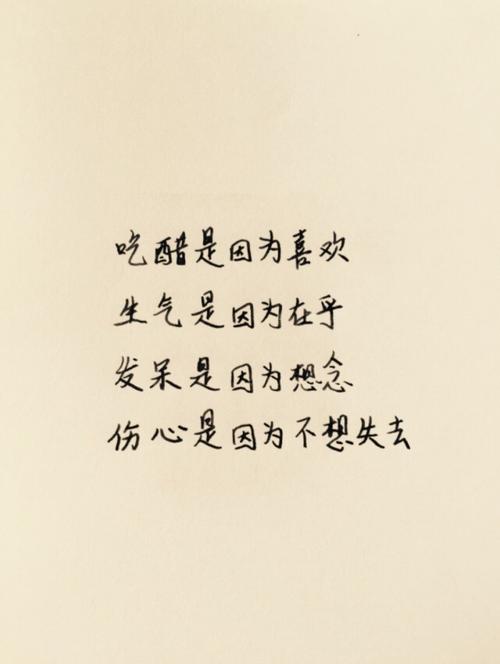 吃醋是因为喜欢
生气是因为在乎
发呆是因为想念
伤心是因为不想失去